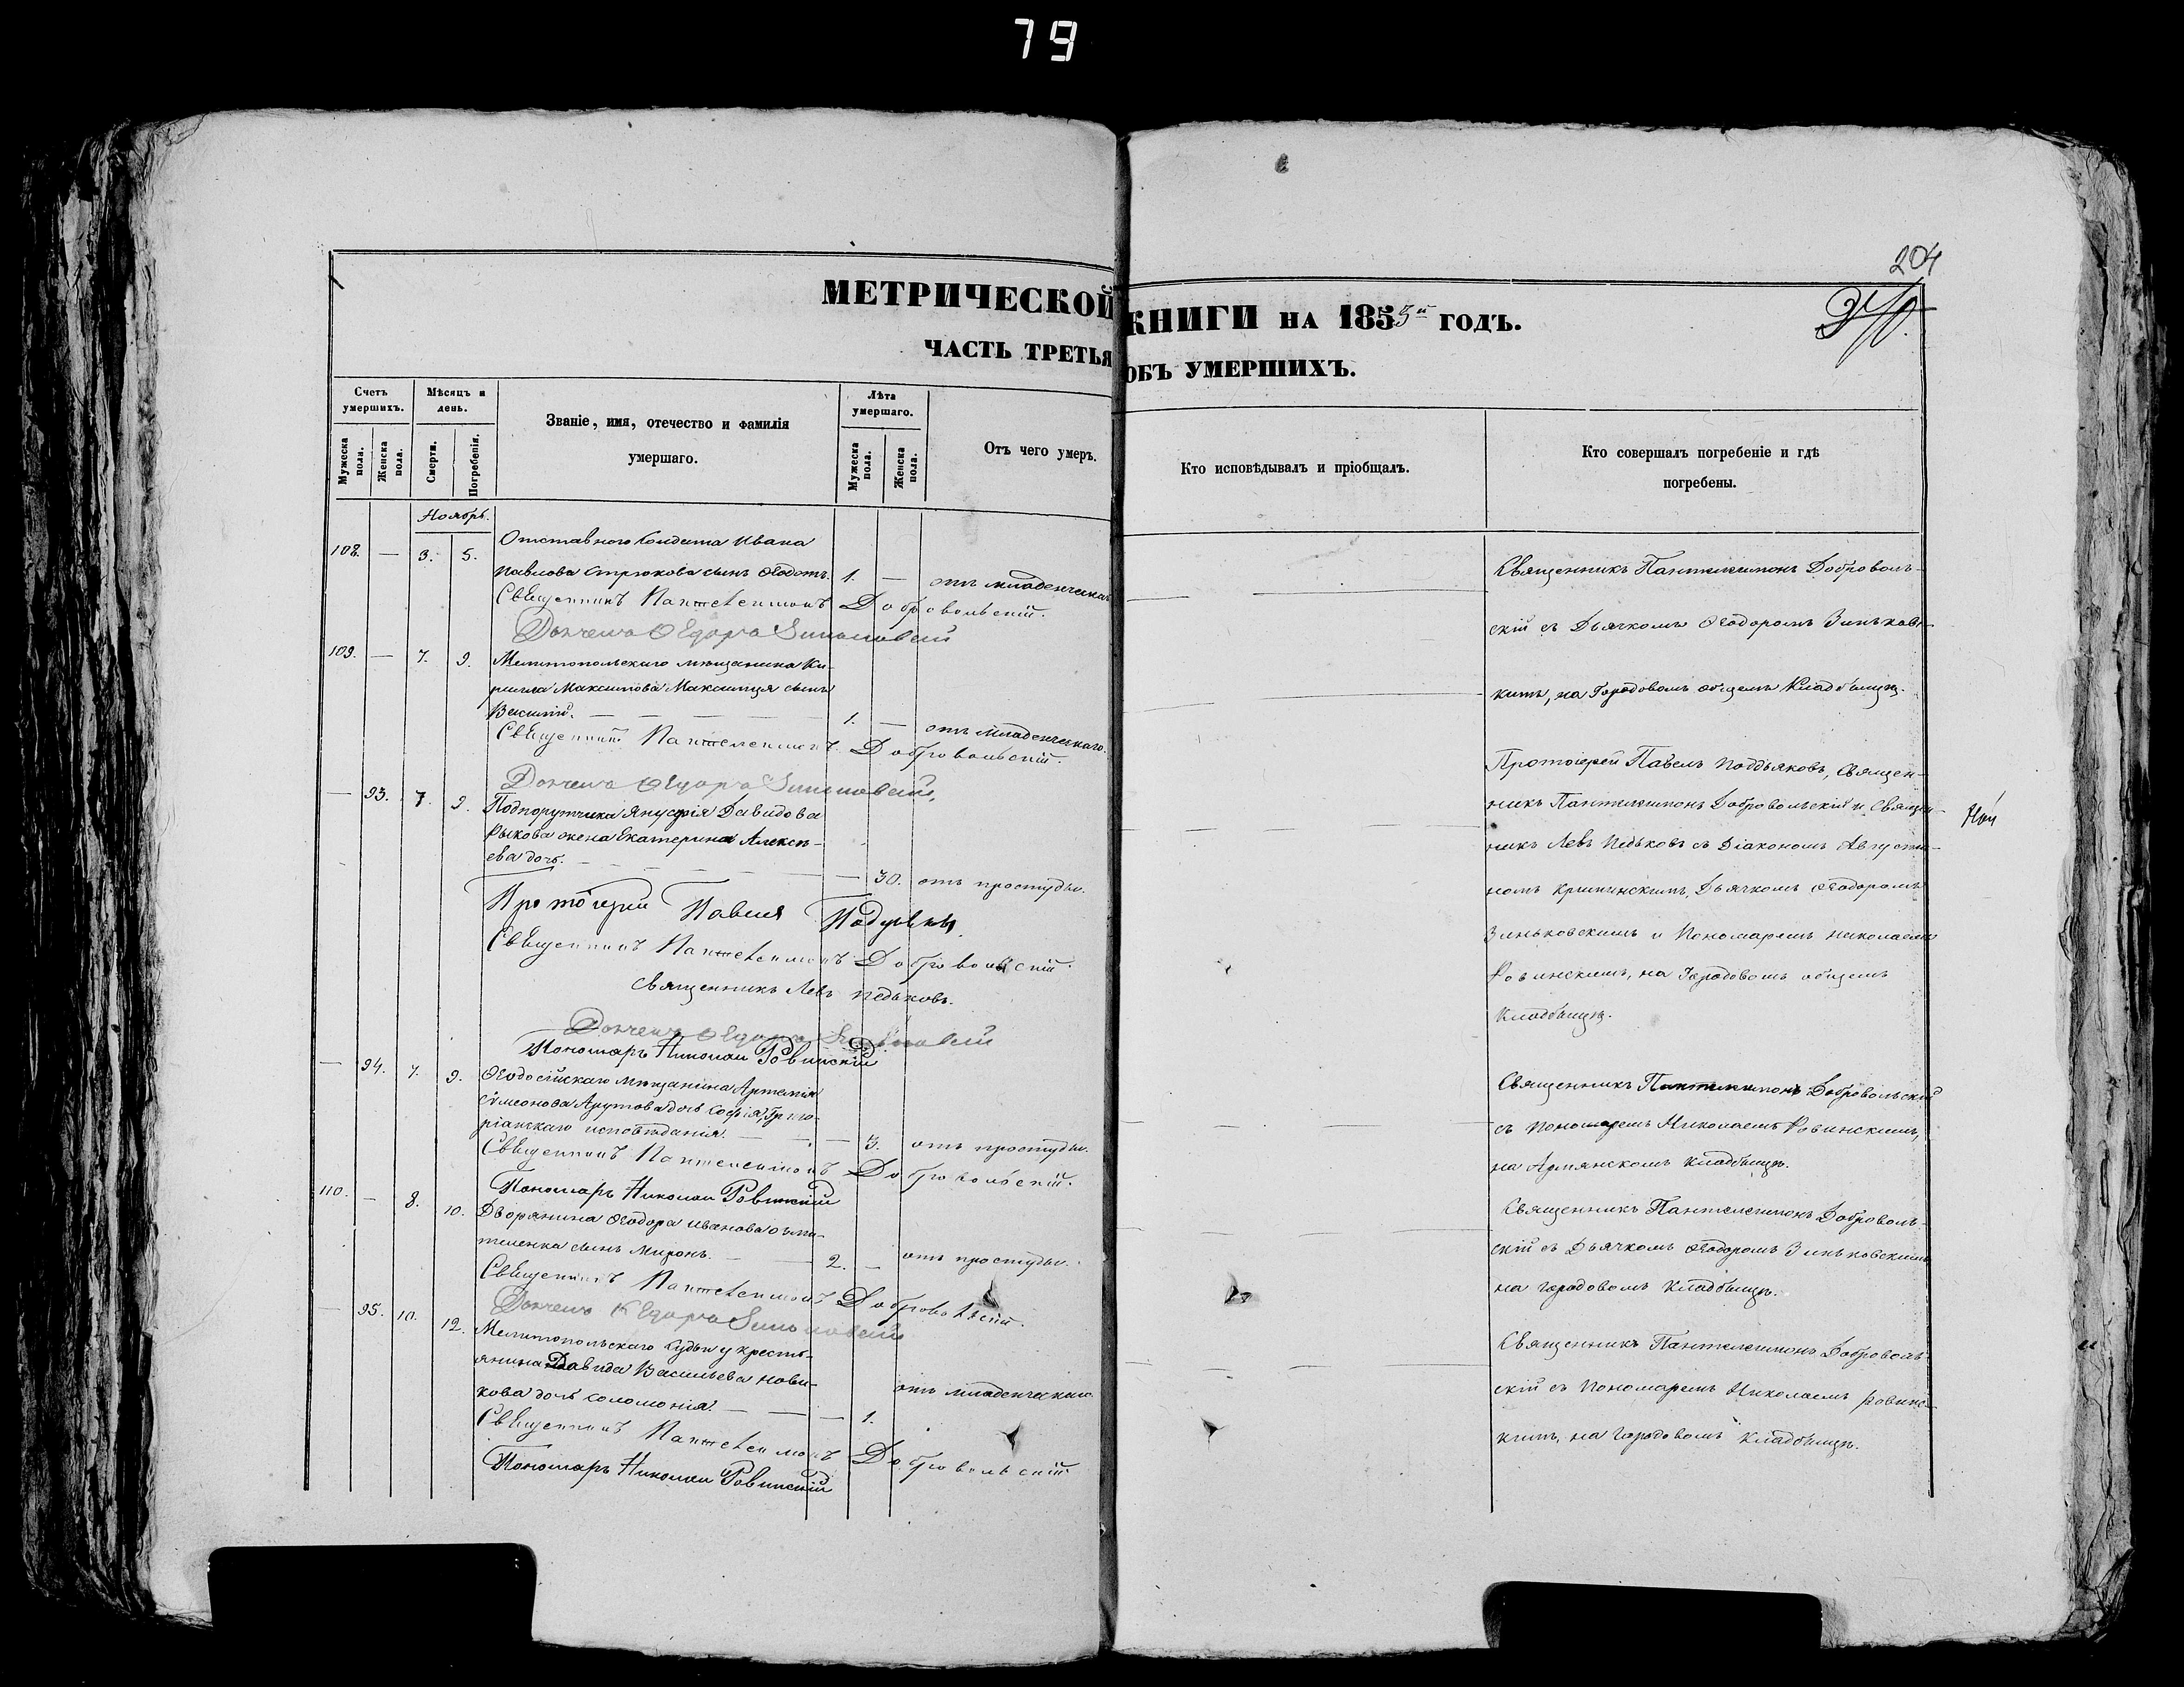 79
204
МЕТРИЧЕСКОЙ КНИГИ НА 1855й ГОДЪ.
ЧАСТЬ ТРЕТЬЯ ОБЪ УМЕРШИХЪ.
Счетъ умершихъ.
Мужеска пола.
Женска пола.
Мѣсяцъ и день.
Смерти.
Погребенія.
Званіе, имя, отечество и фамилія
умершаго.
Лѣта умершаго.
Мужеска пола.
Женска пола.
Отъ чего умеръ.
Кто исповѣдывалъ и пріобщалъ.
Кто совершалъ погребеніе и гдѣ
погребены.
Ноябрь.
108. — 3. 5. Отставного Солдата Ивана
Павлова Стрюкова сынъ Ѳедотъ. 1. — отъ младенческаго
Священникъ Пантелеимонъ Добровольскій.
109. — 7. 9. Мелитопольскаго мѣщанина Ки-
рилла Максимова сынъ
Василій. — 1. — отъ младенческаго.
Священникъ Пантелеимонъ Добровольскій.
— 93. 7. 9. Подпорутчика Давидова
Рыкова жена Екатерина Алексѣ-
ева дочь. — 30. отъ простуды.
Протоіерей Павелъ
Священникъ Пантелеимонъ Добровольскій.
Священникъ Левъ Педьковъ.
Пономарь Николай Ровинскій
— 94. 7. 9. Ѳеодосійскаго мѣщанина Артемія
Симеонова дочь Софія, Григо-
ріанскаго исповѣданія. — 3. отъ простуды.
Священникъ Пантелеимонъ Добровольскій.
Пономарь Николай Ровинскій
110. — 8. 10. Дворянина Ѳеодора Иванова
сынъ Миронъ. — 2. — отъ простуды.
Священникъ Пантелеимонъ Добровольскій.
— 95. 10. 12. Мелитопольскаго кресть-
янина Давида Васильева Нови-
кова дочь Соломонія. — 1. отъ младенческаго
Священникъ Пантелеимонъ Добровольскій
Пономарь Николай Ровинскій
Священникъ Пантелеимонъ Доброволь-
скій съ Дьячкомъ Ѳеодоромъ Зиньковс-
кимъ, на Городовомъ общемъ Кладбищѣ.
Протоіерей Павелъ Поддьяковъ, Священ-
никъ Пантелеимонъ Добровольскій и Священ-
никъ Левъ Педьковъ съ Діакономъ Августи-
номъ Дьячкомъ Ѳеодоромъ
Зиньковскимъ и Пономаремъ Николаемъ
Ровинскимъ, на Городовомъ общемъ
Кладбищѣ.
Священникъ Пантелеимонъ Добровольскій
съ Пономаремъ Николаемъ Ровинскимъ,
на Армянскомъ Кладбищѣ.
Священникъ Пантелеимонъ Доброволь-
скій съ Дьячкомъ Ѳеодоромъ Зиньковскимъ
на Городовомъ Кладбищѣ.
Священникъ Пантелеимонъ Доброволь-
скій съ Пономаремъ Николаемъ Ровинс-
кимъ, на Городовомъ Кладбищѣ.